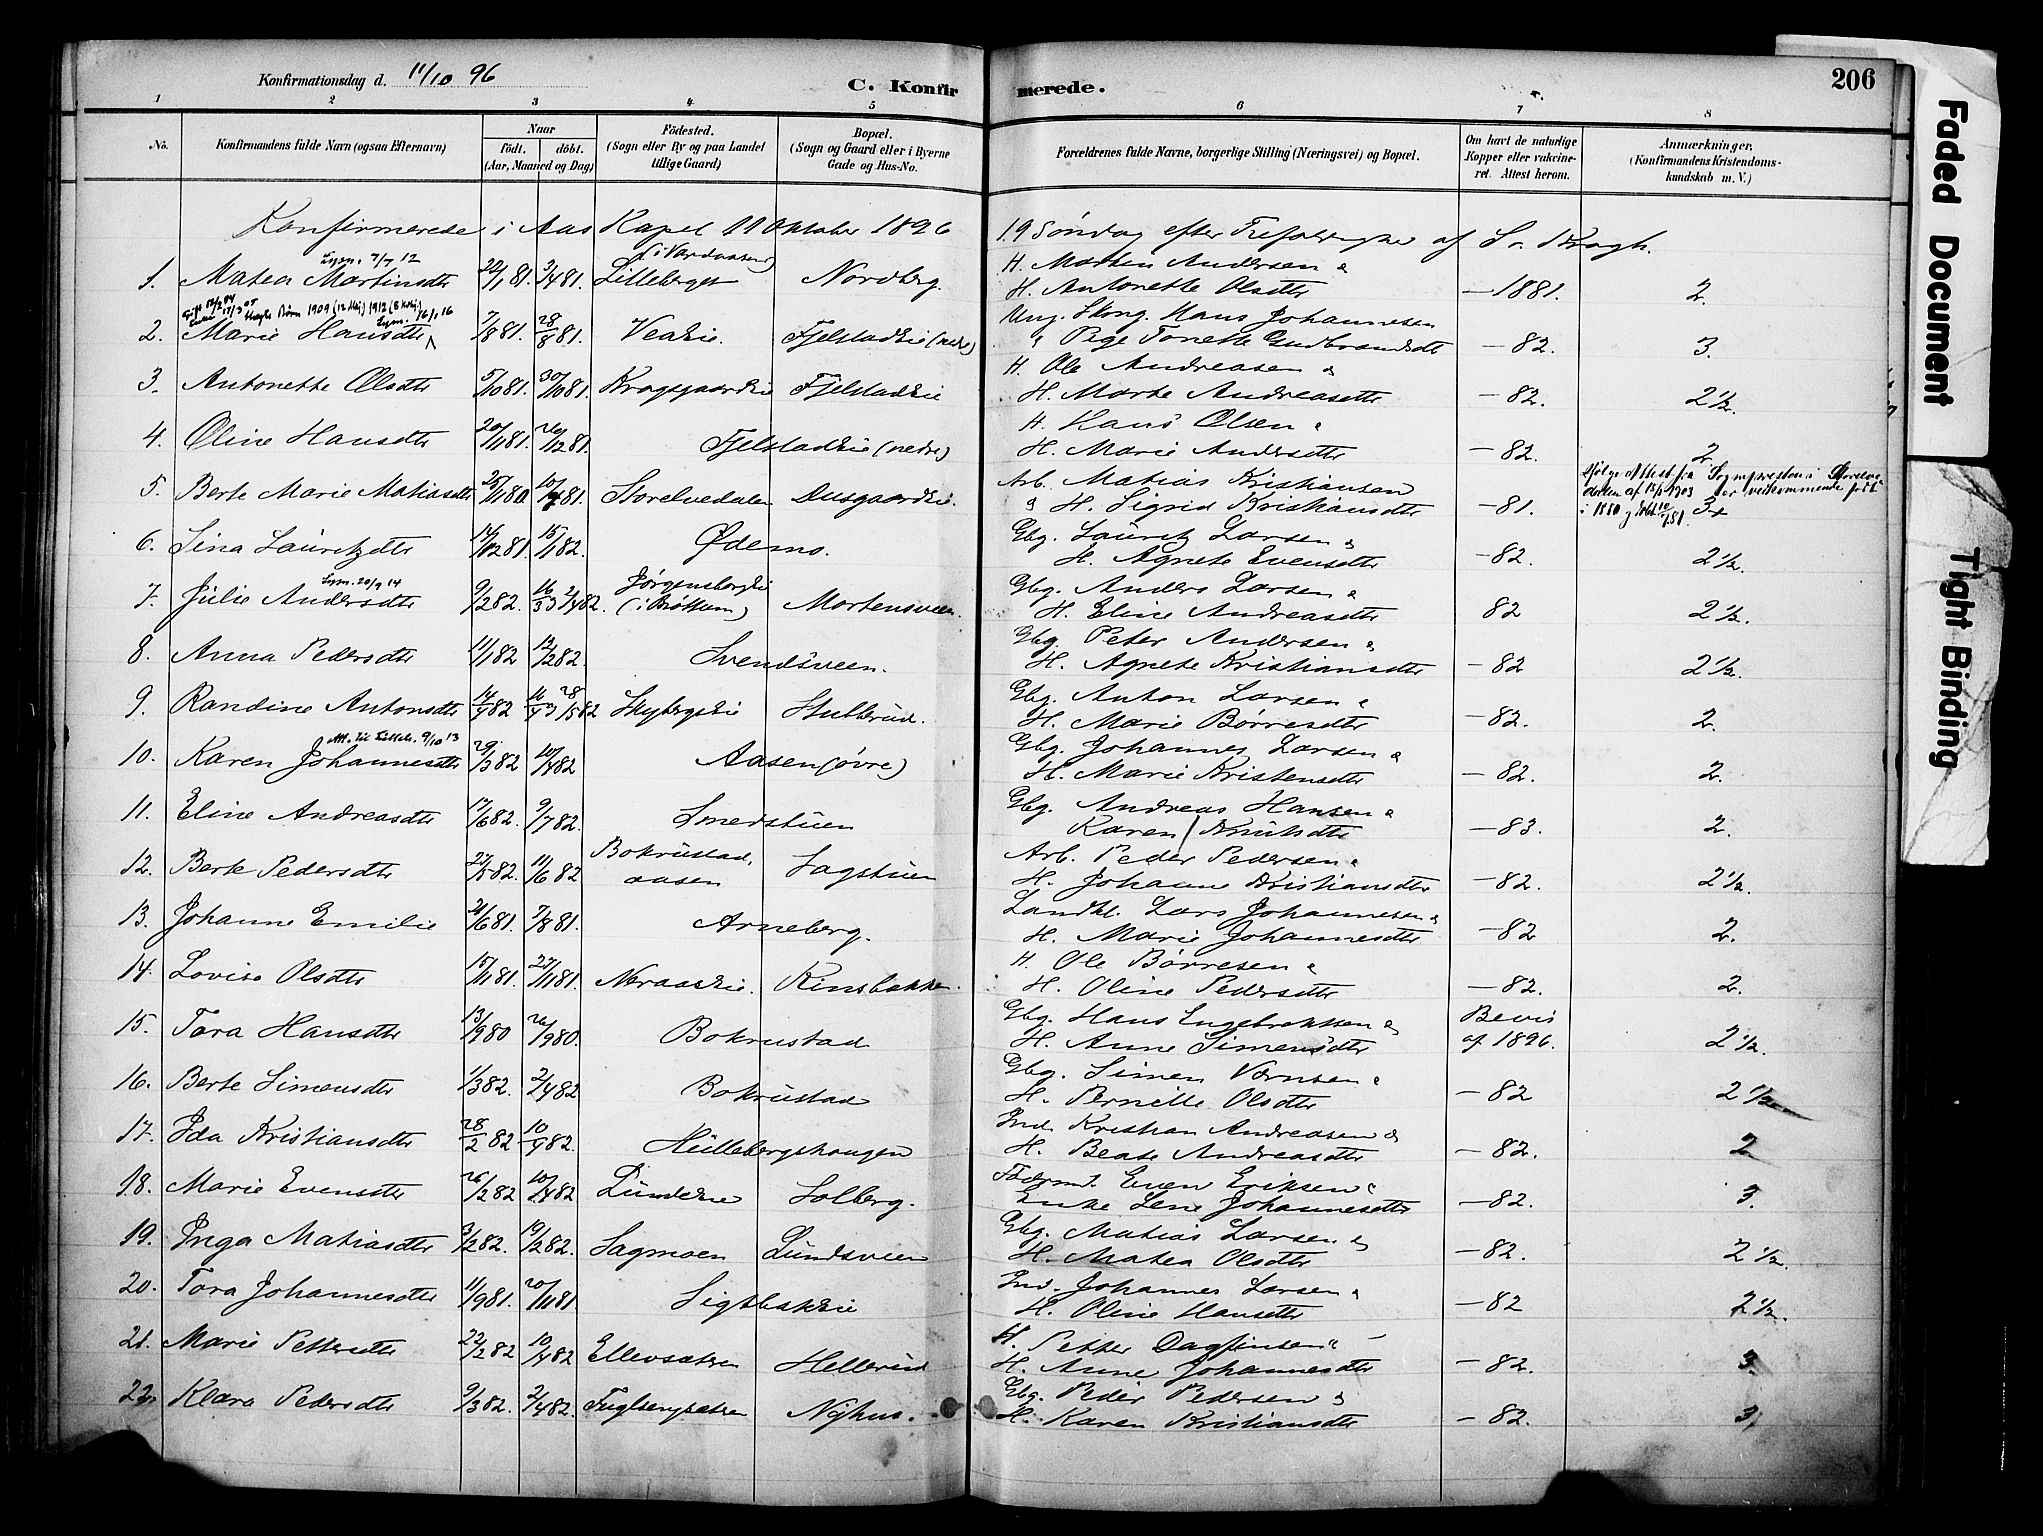 Konfirmationsdag d. 11/10 96 C. Konfirmerede. 206
1 2 3 4 5 6 7 8
No. Konfirmandens fulde Navn (ogsaa Efternavn) Naar födt. döbt. (Aar, Maaned og Dag) Födested. (Sogn eller By og paa Landet tillige Gaard) Bopæl. (Sogn og Gaard eller i Byerne Gade og Hus-No. Forældrenes fulde Navne, borgerlige Stilling (Næringsvei) og Bopæl. Om havt de naturlige Kopper eller vaccineret. Attest herom. Anmærkninger. (Konfirmandens Kristendomskundskab m. V.)
Konfirmerede i Aas Kapel 11 Oktober 1896 19 Søndag efter Trefoldighed af S. Kragh.
1. Matea Martinsdtr 22/1 81. 3/4 81. Lilleberget Nordberg. H. Martin Andersen & H. Antonette Olsdtr — 1881. 2.
2. Marie Hansdtr 7/8 81. 28/8 81. Veakie. Fjelstadkie (nedre) Ung. Skong. Hans Johannesen & Pige Tonette Gudbrandsdtr — 82. 3.
3. Antonette Olsdtr 5/10 81. 30/10 81. Kragsgaardkie Fjelstadkie H. Ole Andreasen & H. Marte Andreasdtr — 82. 2½.
4. Oline Hansdtr 20/11 81. 26/12 81. Fjelstadkie (nedre) H. Hans Olsen & H. Marie Andersdtr — 82. 2
5. Berte Marie Matiasdtr 25/11 80. 10/4 81. Storelvedalen Dusgaardkie. Arb. Matias Kristiansen & H. Sigrid Kristiansdtr — 81. 3+
6. Sina Lauritzdtr 14/12 81. 15/1 82. Ødemo. Gbg. Lauritz Larsen & H. Agnete Evensdtr — 82. 2½.
7. Julie Andersdtr Lysn. 20/9 14 9/2 82. 16/3 2/4 82. Jørgensborgkie (i Brøttum) Mortensveen. Gbg. Anders Larsen & H. Eline Andreasdtr 82 2½.
8. Anna Pedersdtr 11/1 82 12/2 82. Svendsveen. Gbg. Peter Andersen & H. Agnete Kristiansdtr — 82 2½.
9. Randine Antonsdtr 14/4 82 16/4 28/5 82 Skybergskie Stutterud. Gbg. Anton Larsen & H. Marie Børresdtr — 82. 2.
10. Karen Johannesdtr 29/3 82 10/4 82 Aasen (øvre) Gbg. Johannes Larsen & H. Marie Kristensdtr — 82. 2.
11. Eline Andreasdtr 17/6 82. 9/7 82. Smedstuen Gbg. Andreas Hansen & Karen Knutsdtr — 83. 2.
12. Berte Pedersdtr 22/5 82. 11/6 82 Bokrustadaasen Sagstuen Arb. Peder Pedersen & H. Johanne Kristiansdtr — 82. 2½.
13. Johanne Emilie 21/6 81. 7/8 81. Arneberg. Landhl. Lars Johannesen & H. Marie Johannesdtr — 82 2.
14. Lovise Olsdtr 15/11 81. 27/11 81. Neraaskie. Kinsbakken. H. Ole Børresen & H. Oline Pedersdtr — 82. 2.
15. Tora Hansdtr 13/9 80 26/9 80. Bokrustad Gbg. Hans Engebretsen & H. Anne Simensdtr Bevis af 1896. 2½.
16. Berte Simensdtr 1/3 82. 2/4 82 Bokrustad Gbg. Simen H. Pernille Olsdtr — 82 2½
17. Ida Kristiansdtr 28/2 82 10/4 82. Hullebergshaugen Ind. Kristian Andreasen & H. Beate Andreasdtr — 82. 2
18. Marie Evensdtr 26/2 82 10/4 82 Lundekie Solberg. Even Eriksen & Enke Lene Johannesdtr — 82. 3.
19. Inga Matiasdtr 3/2 82. 19/2 82. Sagmoen Lundsveen Gbg. Matias Larsen & H. Matea Olsdtr — 82. 2½.
20. Tora Johannesdtr 11/9 81. 20/11 81 Sigtbakkie Ind. Johannes Larsen & H. Oline Hansdtr — 82 2½.
21. Marie Pettersdtr 22/2 82 10/4 82 Ellevsætren Hellerud H. Petter Dagfinsen & H. Anne Johannesdtr — 82. 3.
22. Klara Pedersdtr 9/3 82. 2/4 82. Fuglsengsætren Nyhus. Gbg. Peder Pedersen & H. Karen Kristiansdtr — 82. 3,
Faded Document
Tight Binding